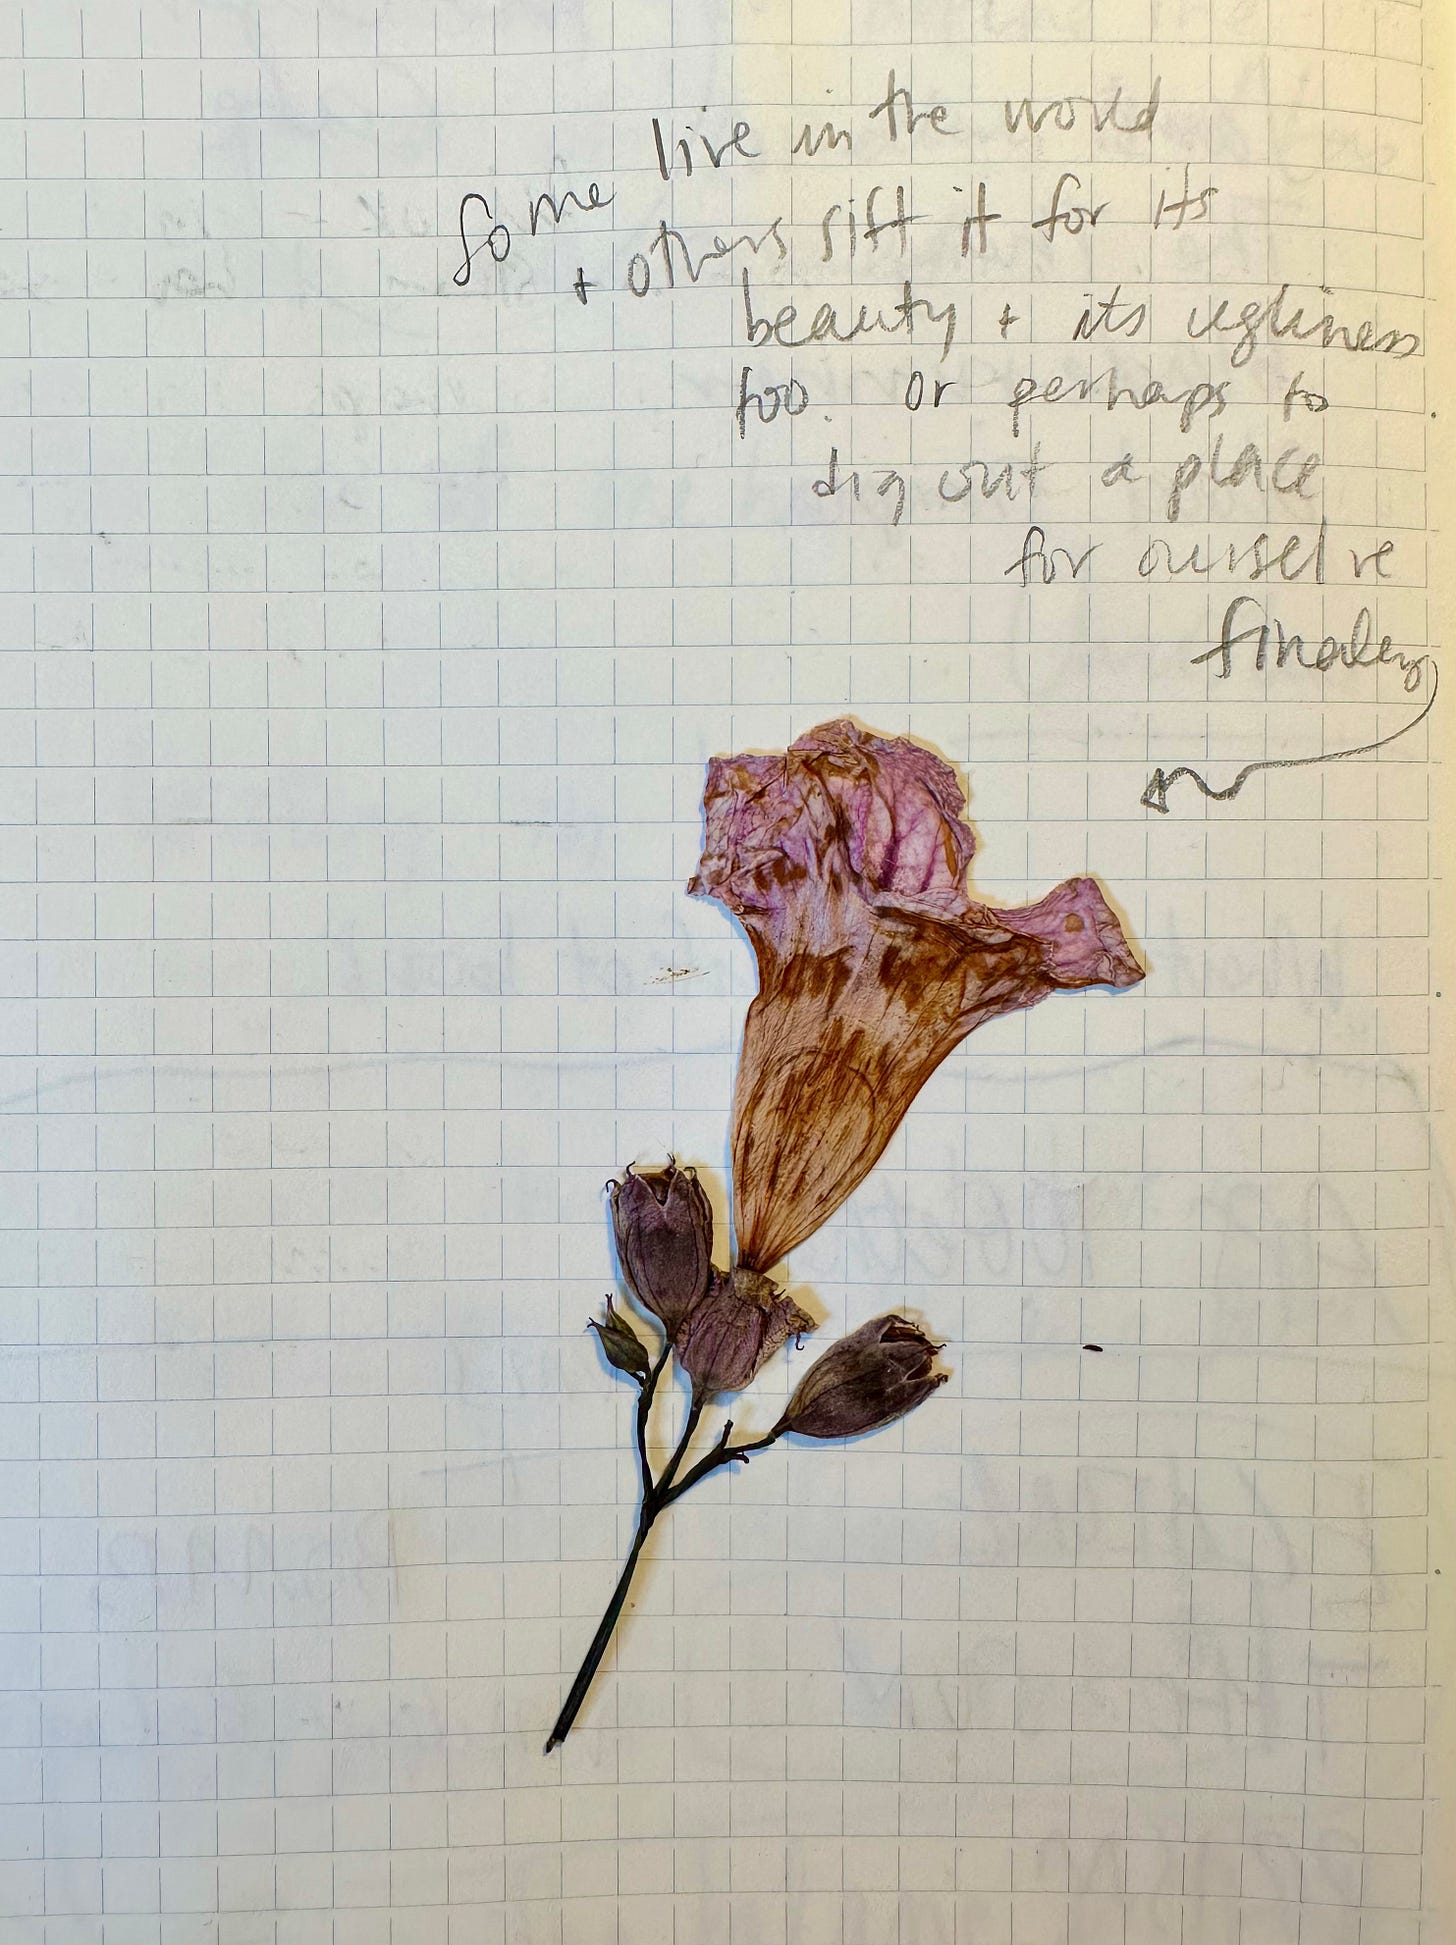 Some live in the world
+ others sift it for its
beauty + its ugliness
too. Or perhaps to
dig out a place
for ourselve
finaley